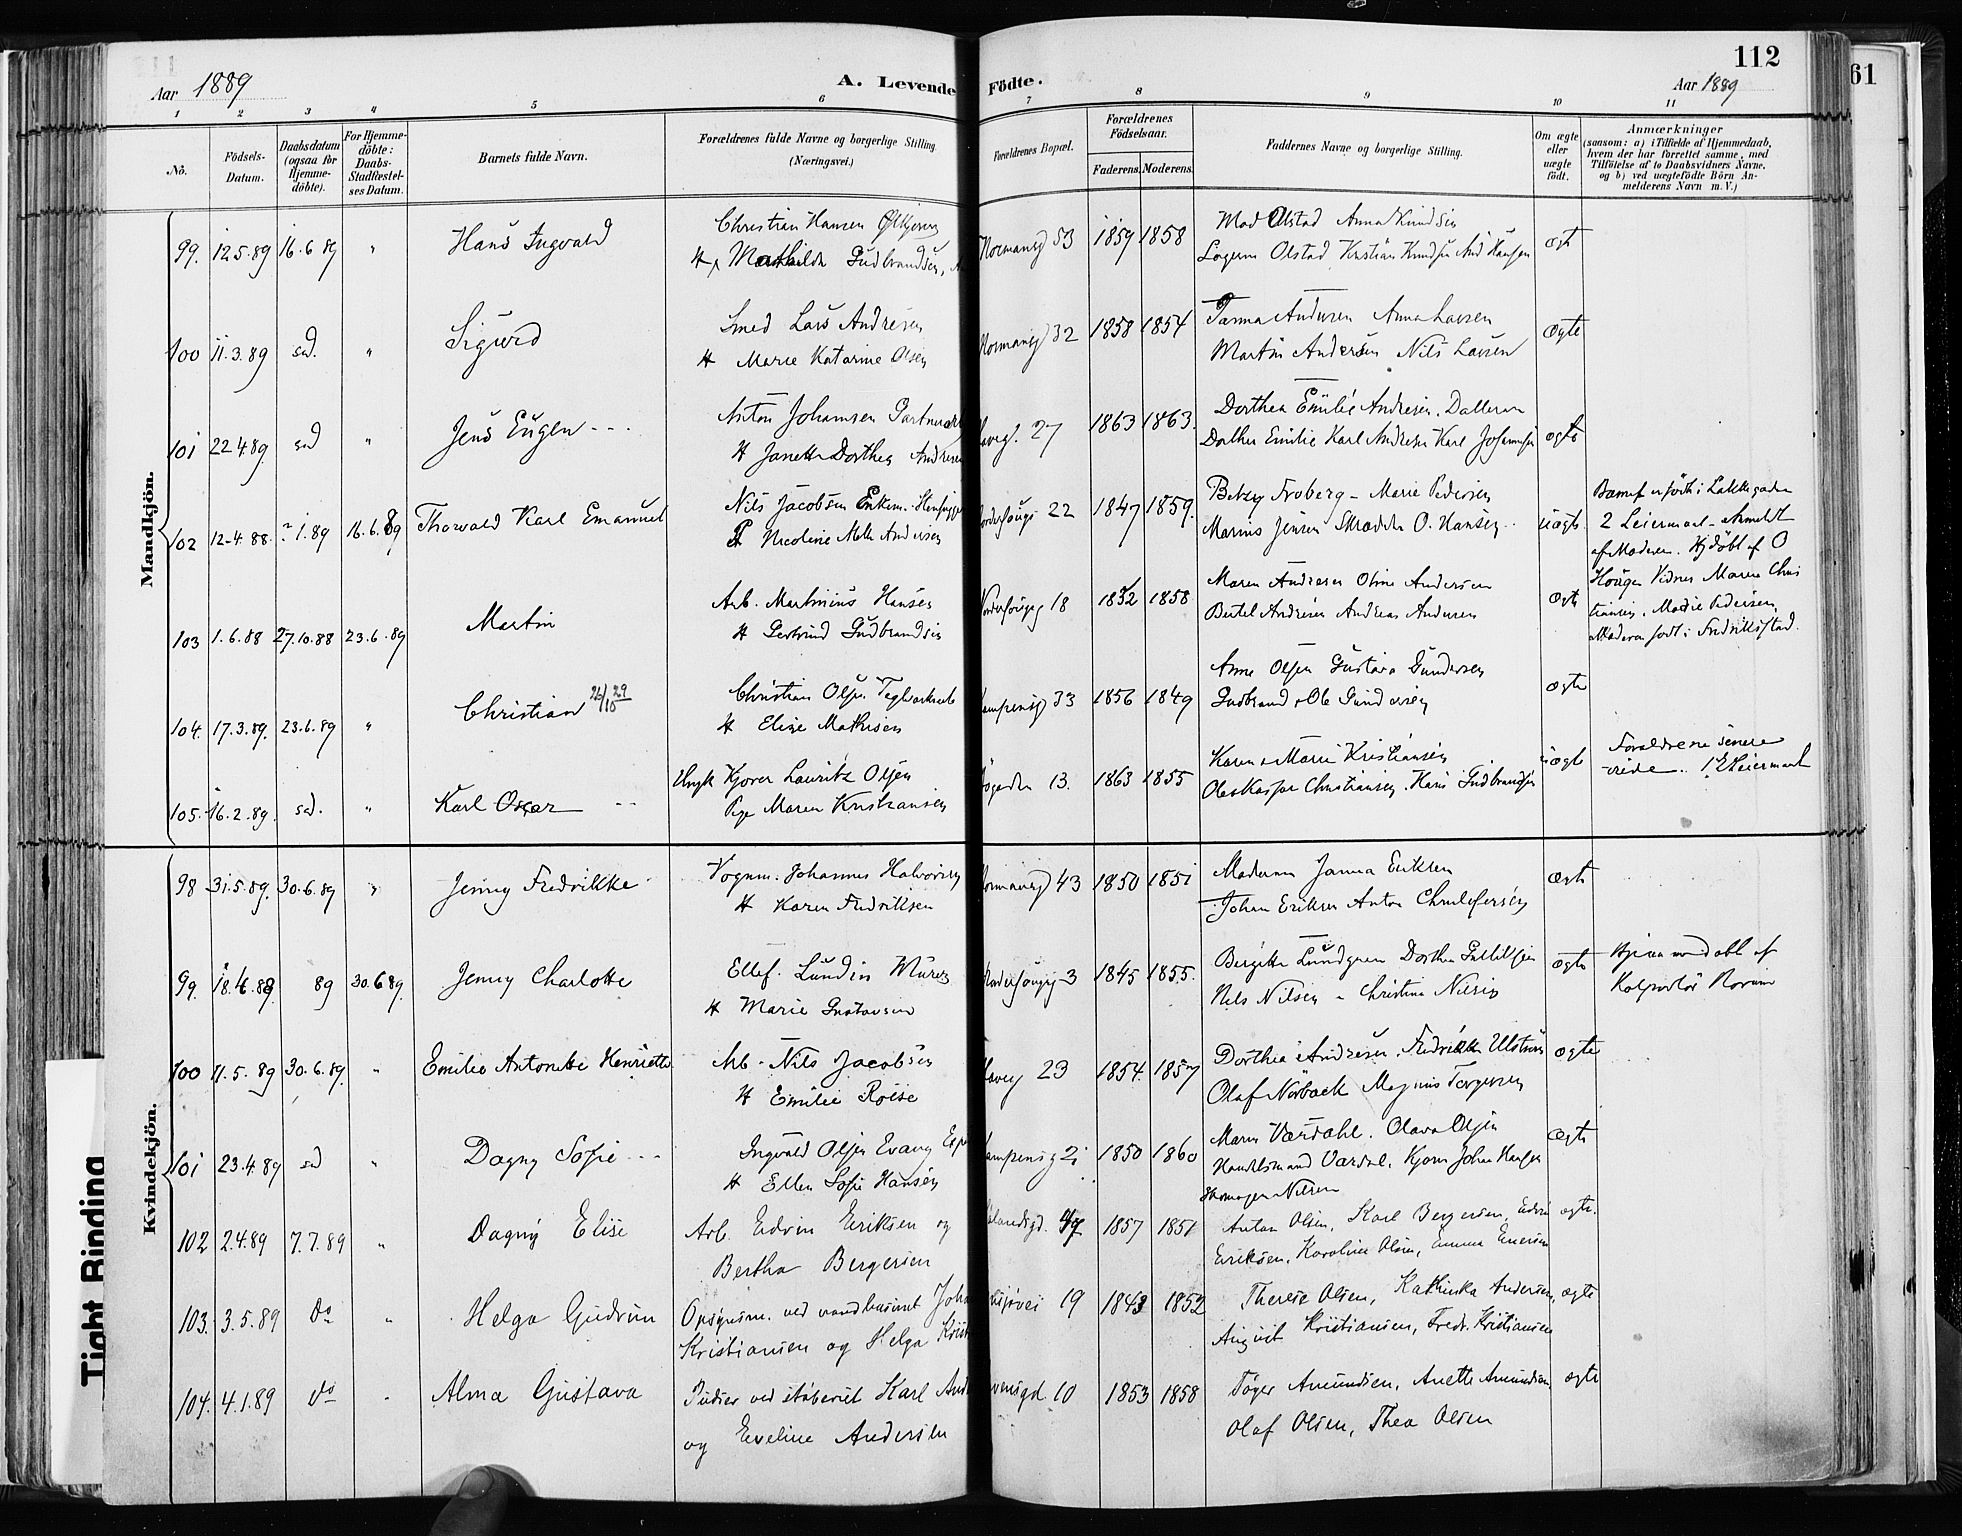 112
61
Aar 1889
A. Levende Födte.
Aar 1889
1 2 3 4 5 6 7 8 9 10 11
No.
Födsels-Datum.
Daabsdatum (ogsaa for Hjemmedöbte).
For Hjemmedöbte: Daabs-Stadfæstelses Datum.
Barnets fulde Navn.
Forældrenes fulde Navne og borgerlige Stilling (Næringsvei.)
Forældrenes Bopæl.
Forældrenes Födselsaar.
Faderens. Moderens.
Faddernes Navne og borgerlige Stilling.
Om ægte eller uægte födt.
Anmærkninger
(saasom: a) i Tilfælde af Hjemmedaab, hvem der har forrettet samme, med Tilföielse af to Daabsvidners Navne, og b) ved uægtefödte Börn Anmelderens Navn m. V.)
Mandkjön.
99. 12.5.89 16.6 89 " Hans Ingvald
Christian Hansen
Mathilde Gudbrandsen,
Normansg 53 1859 1858
Olstad Anna Knudsen
Olstad, Kristian Knudsen And Hansen
ægt
100 11.3.89 sd. " Sigurd
Smed Lars Andresen
H Marie Katarine Olsen
Normansg 32 1858 1854
Andersen Anna Larsen
Martin Andersen Nils Larsen
ægte
101 22.4.89. sd " Jens Eugen - - -
Anton Johansen
H Janette Dorthea Andresen
27 1863 1863.
Dorthea Emilie Andresen.
Emilie Karl Andresen Karl Johansen
ægte
102 12-4.88. ? 1.89 16.6.89 Thorvald Karl Emanuel
Nils Jacobsen Enkem.
P Nicoline Andersen
22 1847 1859.
Betzy Froberg - Marie Pedersen
Marius Jensen Skrædder O. Hansen
uægte
Barnet er födt i Lakkegaden
2 Leiermaal - Anmeldt
af Moderen. Hjdöbt af O
Hougen Vidner Maren Chris
tiansen, Marie Pedersen,
Moderen födt i Fredrikstad.
103 1.6.88 27.10.88 23.6.89 Martin
Arb. Martinius Hansen
H Gertrud Gudbrandsen
18 1852 1858
Maren Andresen Oline Andersen
Bertel Andresen Andreas Andersen
ægte
104. 17.3.89. 23.6.89 " Christian 26/10 29
Christian Olsen
H Elise Mathisen
Kampensg 33 1856 1849
Anne Olsen Gustava Gundersen
Gudbrand Ole Gundersen
ægte
105. 16.2.89. sd. " Karl Oscar - -
Ungk Kjører Lauritz Olsen
Pge Maren Kristiansen
13. 1863 1855
Karen Marie Kristiansen
Ole Kaspar Christiansen, Hans Gudbrandsen
uægte
Forældrene senere
viede. 1 Leiermaal
Kvindekjön.
98 31.5.89. 30.6.89 " Jenny Fredrikke
Vognm. Johannes Halvorsen
H Karen Fredriksen
Normansg 43 1850 1851
Moderen Janna Eriksen
Johan Eriksen Anton Christofersen
ægte
99. 18.4.89 89 30.6 89. Jenny Charlotte
Ellef. Lundin Murer
H Marie Gustavsen
3 1845 1855.
Birgitte Lundgren Dorthea Gulliksen
Nils Nilsen - Christine Nilsen
ægte
Hjemmedöbt af
Kolportör
100 11.5.89 30.6.89. " Emilie Antonette Henriette
Arb - Nils Jacobsen
H Emilie Roise
23 1854. 1857
Dorthea Andresen. Fredrikke
Olaf Norbæck Magnus Torgersen
ægte
101 23.4.89 sd " Dagny Sofie - - -
Ingvald Olsen Evang
H Ellen Sofie Hansen
Kampensg 21 1850 1860
Maren Værdahl. Olava Olsen
Handelsmand Værdal, Kjører Johan Hansen
Skomager Nilsen
ægte
102 2.4.89 7.7.89 " Dagny Elise
Arb. Edvin Eriksen og
Bertha Bergersen
47 1857 1851
Anton Olsen, Karl Bergersen, Edvin
Eriksen, Karoline Olsen, Emma
ægte.
103. 3.5.89 do " Helga Gudrun
Opsynsm. ved vandhuset Joha
Kristiansen og Helga Krist
19 1843 1852
Therese Olsen, Kathinka Andersen,
August Kristiansen, Fredr. Kristiansen
ægte
104. 4.1.89 do " Alma Gustava
Pudser ved støberiet Karl Ande
og Eveline Andersen
10 1853 1858
Amundsen, Anette Amundsen
Olaf Olsen, Thea Olsen
ægte
Tight Binding